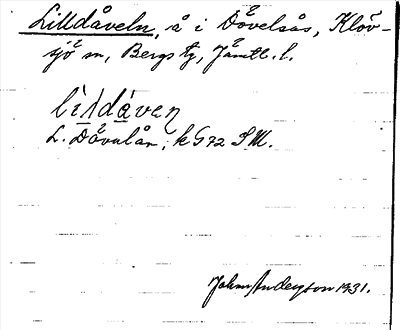 Lilldåveln, å i Dåvelsås, Klöv-
sjö sn, Bergs tg, Jämtl. l.
lìldåven
L. Dåvulån, k G 72 SM.
John Anderson 1931.